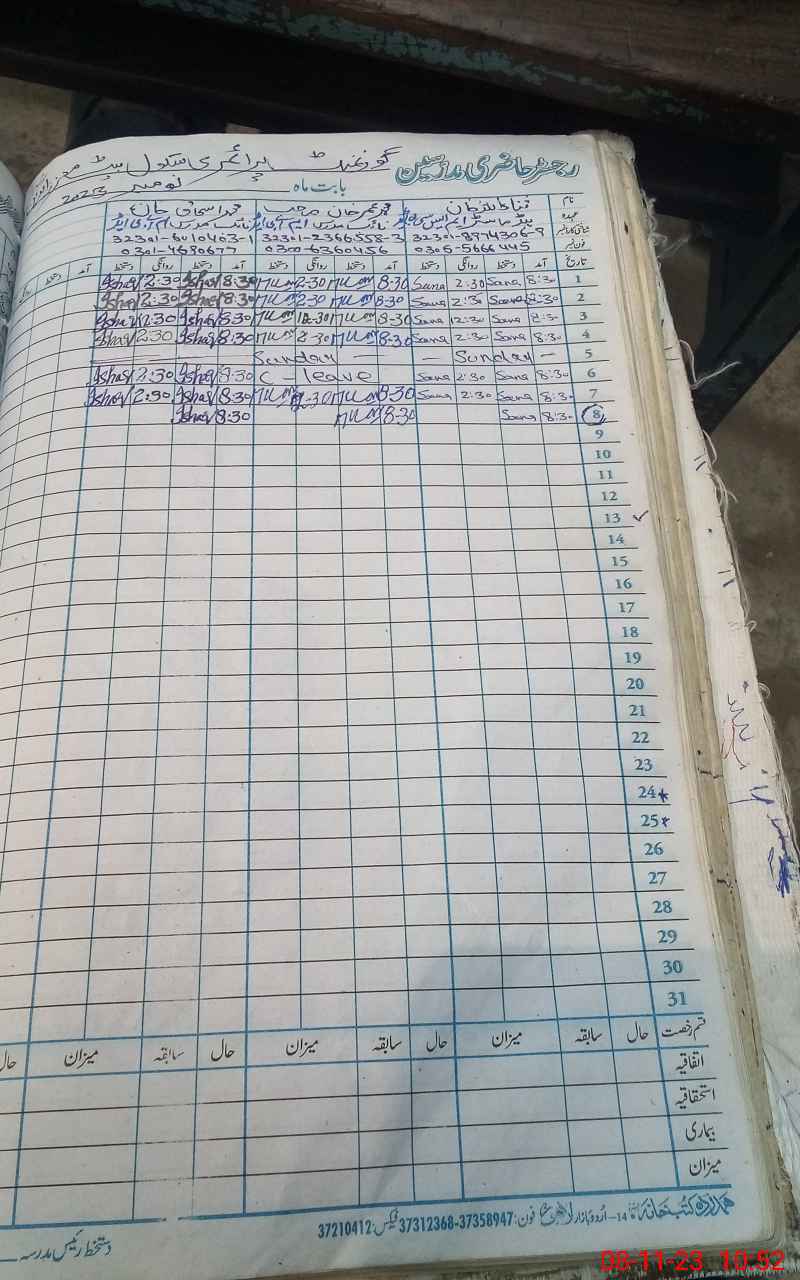 رجسٹر حاضری مدرسین گورنمنٹ پرائمری سکول
بابت ماہ نومبر 2023
نام ثناء اللہ خان محمد عمر خان محمد اسحاق خان
عہدہ ہیڈ ماسٹر
شناختی کارڈ نمبر 32301-8974306-9 32301-2366558-3 32301-6010463-1
فون نمبر 0305-5666445 0300-6360456 0301-4686677
تاریخ آمد دستخط روانگی دستخط آمد دستخط روانگی دستخط آمد دستخط روانگی دستخط آمد دستخط
1 8:30 Sana 2:30 Sana 8:30 2:30 8:30 Ishaq 2:30 Ishaq
2 8:30 Sana 2:30 Sana 8:30 2:30 8:30 Ishaq 2:30 Ishaq
3 8:30 Sana 12:30 Sana 8:30 12:30 8:30 Ishaq 2:30 Ishaq
4 8:30 Sana 2:30 Sana 8:30 2:30 8:30 Ishaq 2:30 Ishaq
5 — Sunday — — Sunday — —
6 8:30 Sana 2:30 Sana C - leave 8:30 Ishaq 2:30 Ishaq
7 8:30 Sana 2:30 Sana 8:30 2:30 8:30 Ishaq 2:30 Ishaq
8 8:30 Sana 8:30 8:30 Ishaq
9
10
11
12
13 ✓
14
15
16
17
18
19
20
21
22
23
24*
25*
26
27
28
29
30
31
قسم رخصت حال سابقہ میزان حال سابقہ میزان حال سابقہ میزان حال
اتفاقیہ
استحقاقیہ
بیماری
میزان
ہمدرد کتب خانہ 14-اردو بازار لاہور فون: 37312368-37358947 فیکس: 37210412
دستخط رئیس مدرسہ
08-11-23 10:52